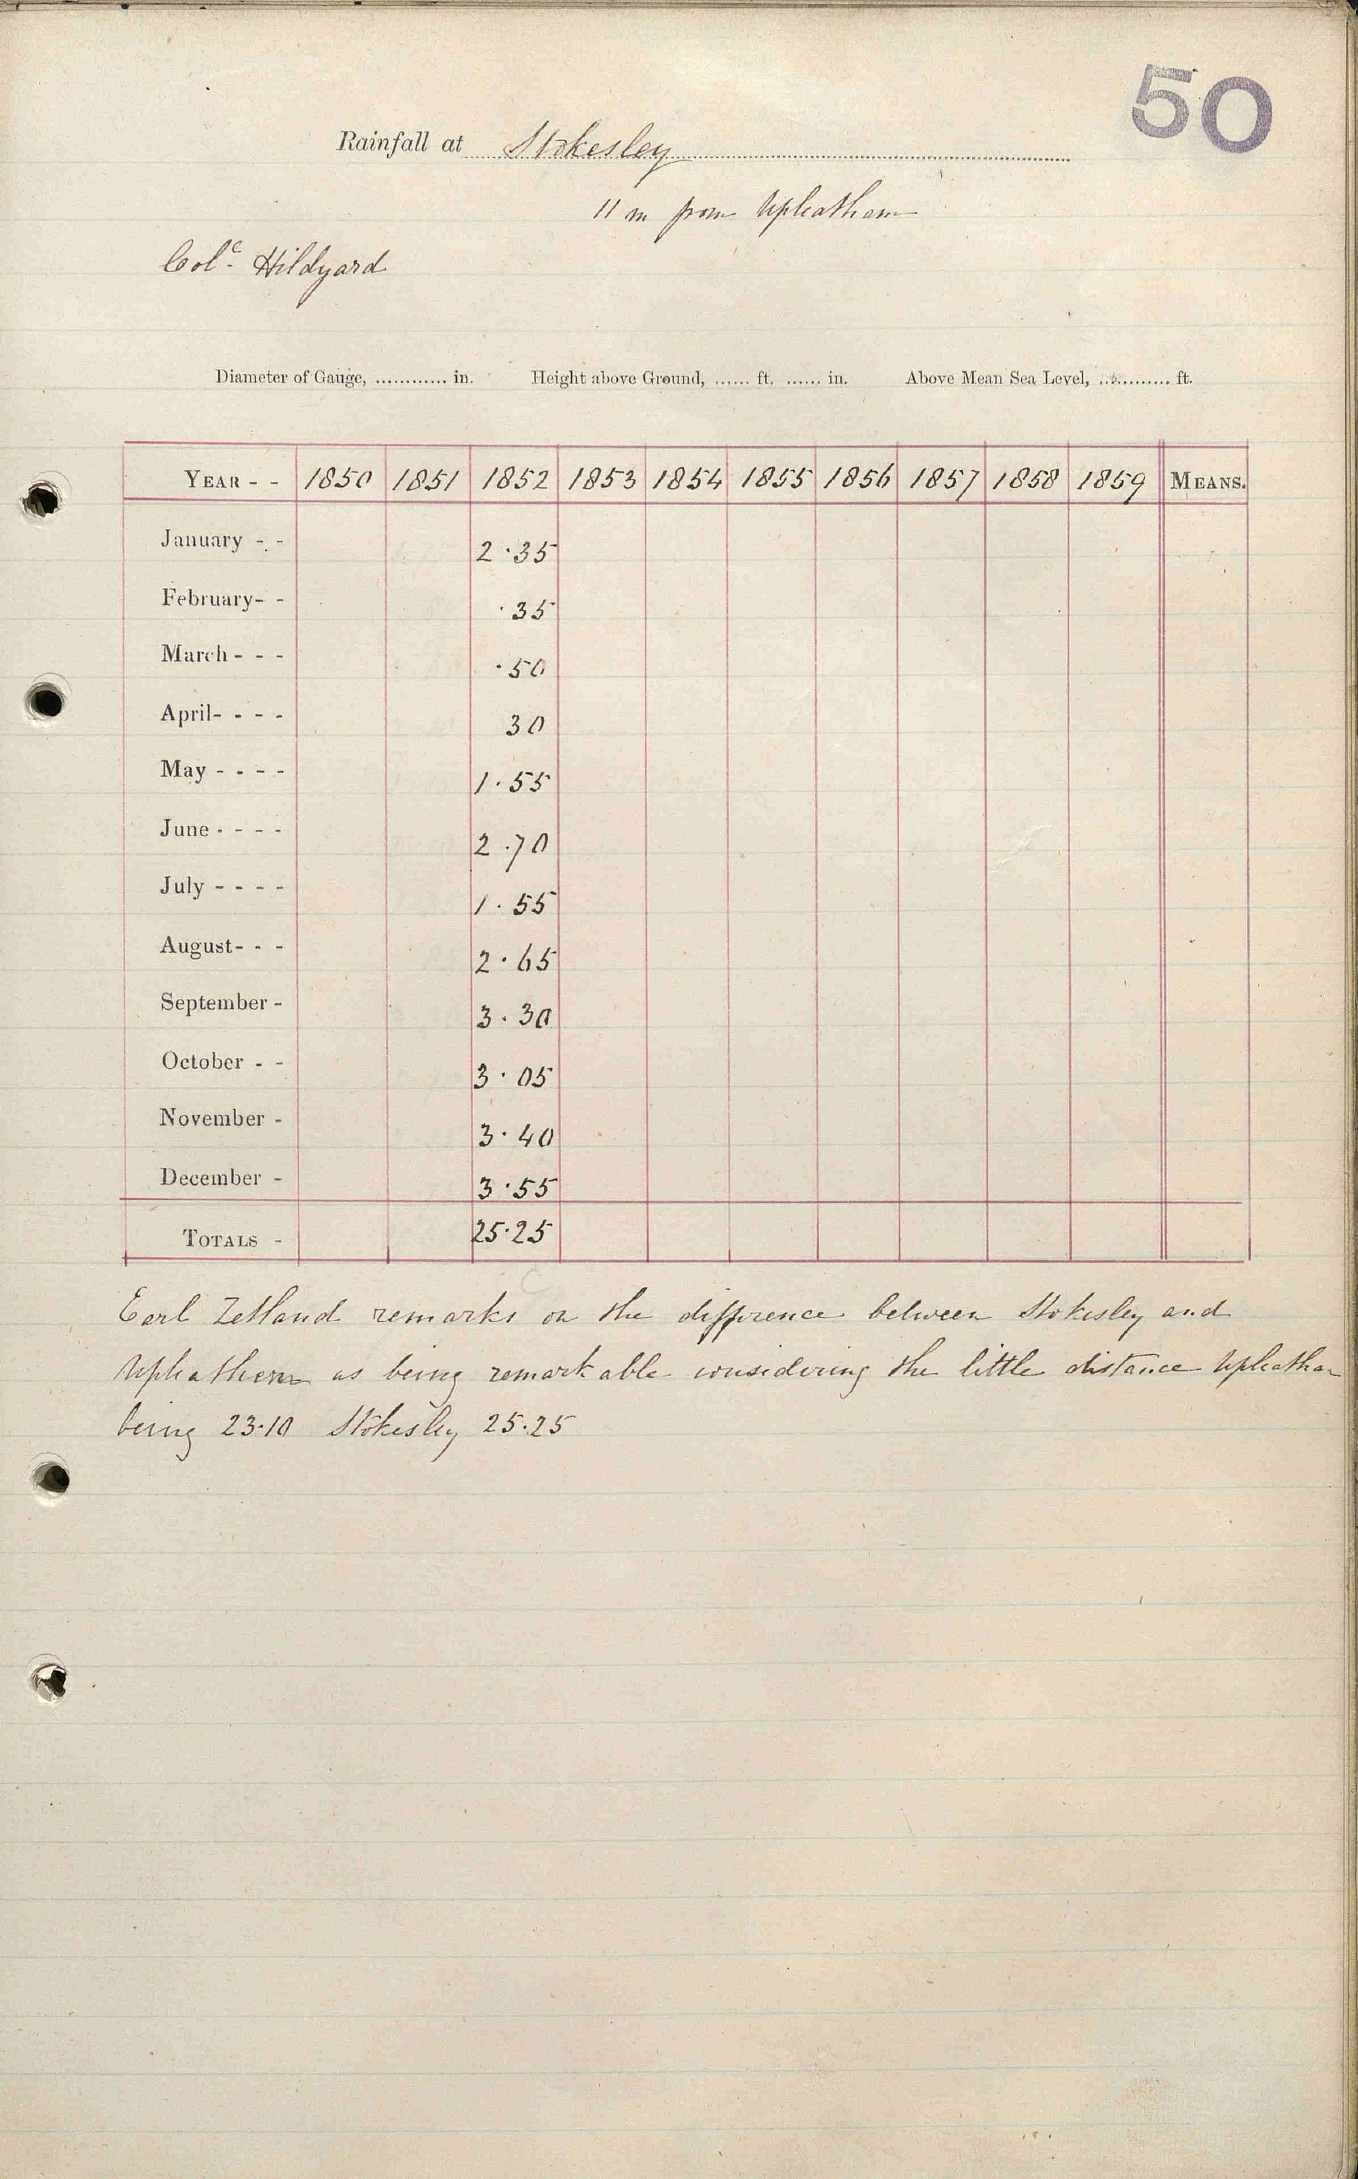 50
Rainfall at Stokesley
11 m from Upleatham
Colᶜ Hildyard
Diameter of Gauge, ............ in. Height above Ground, ...... ft. ...... in. Above Mean Sea Level, ............ ft.
YEAR - - 1850 1851 1852 1853 1854 1855 1856 1857 1858 1859 MEANS.
January - - 2.35
February- - .35
March - - - .50
April- - - - 30
May - - - - 1.55
June - - - - 2.70
July - - - - 1.55
August- - - 2.65
September - 3.30
October - - 3.05
November - 3.40
December - 3.55
TOTALS - 25.25
Earl Zetland remarks on the difference between Stokesley and
Upleatham as being remarkable considering the little distance Upleatham
being 23.10 Stokesley 25.25